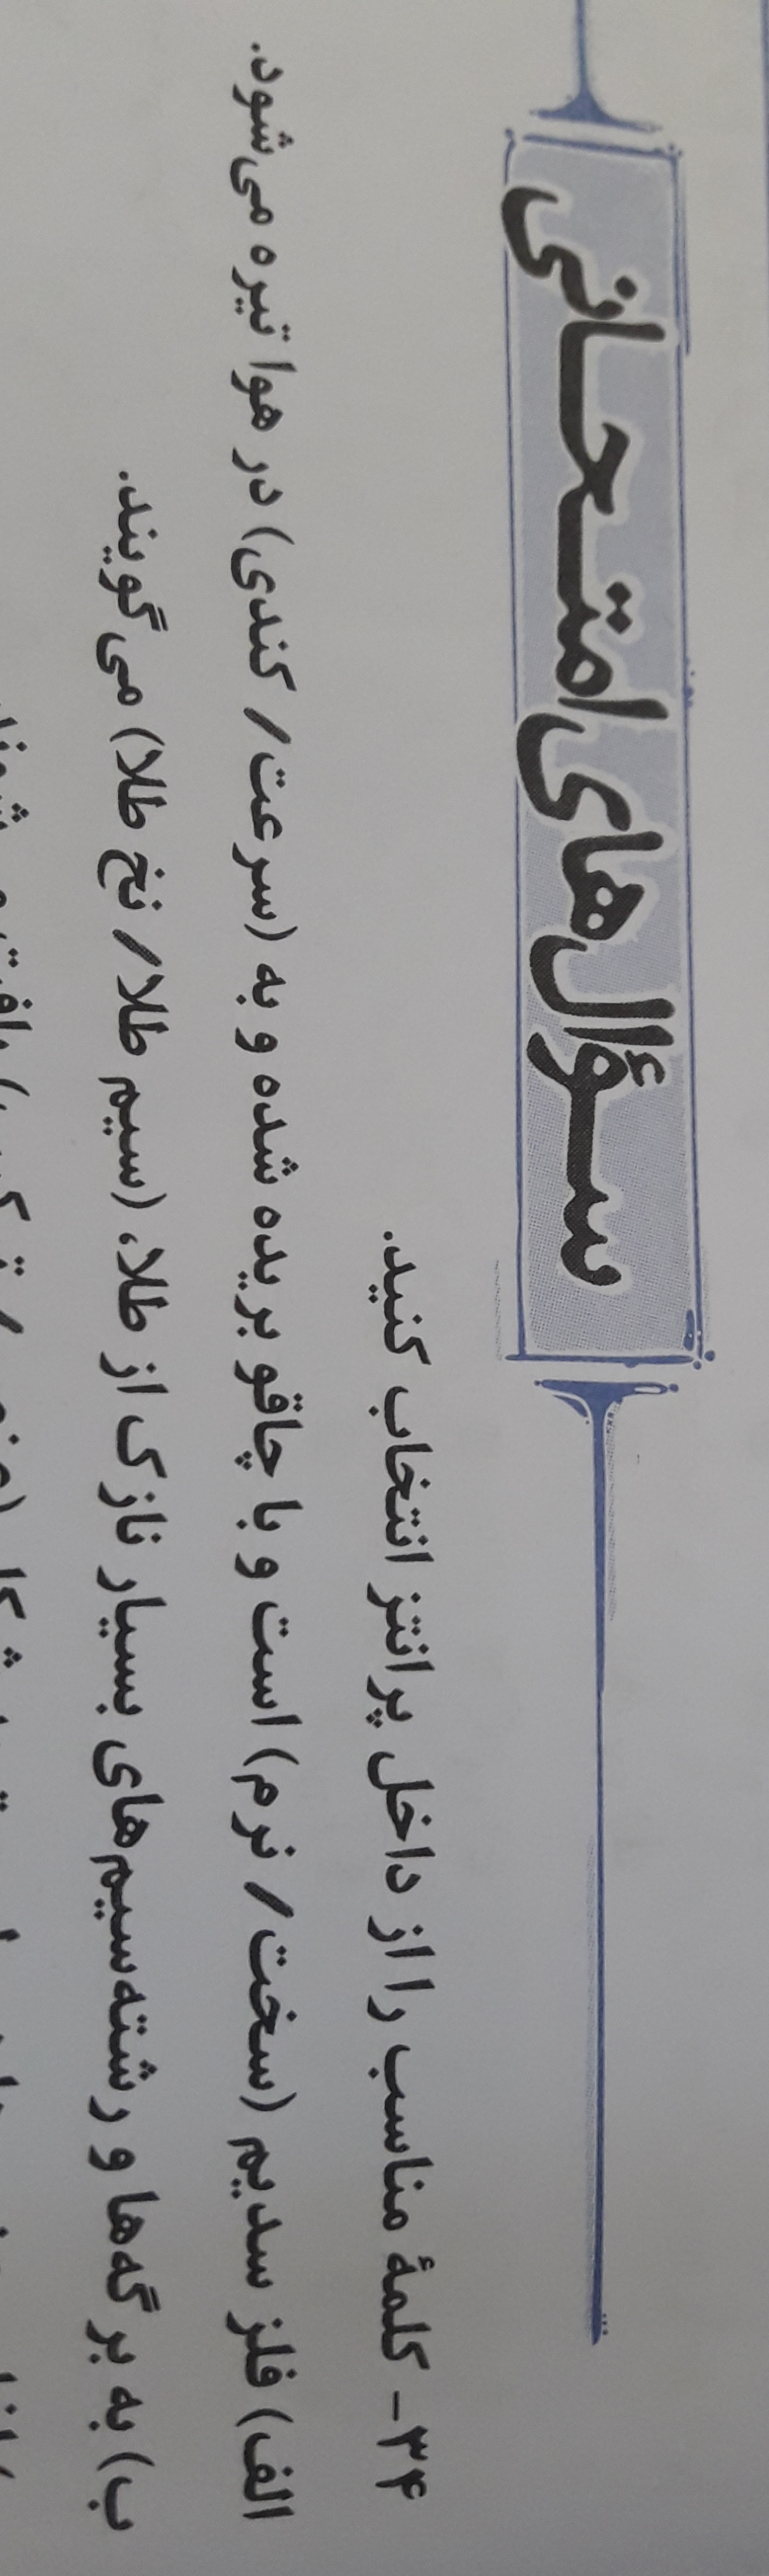 سؤال‌های امتحانی
۳۴- کلمۀ مناسب را از داخل پرانتز انتخاب کنید.
الف) فلز سدیم (سخت / نرم) است و با چاقو بریده شده و به (سرعت / کندی) در هوا تیره می‌شود.
ب) به برگه‌ها و رشته‌سیم‌های بسیار نازک از طلا، (سیم طلا / نخ طلا) می‌گویند.